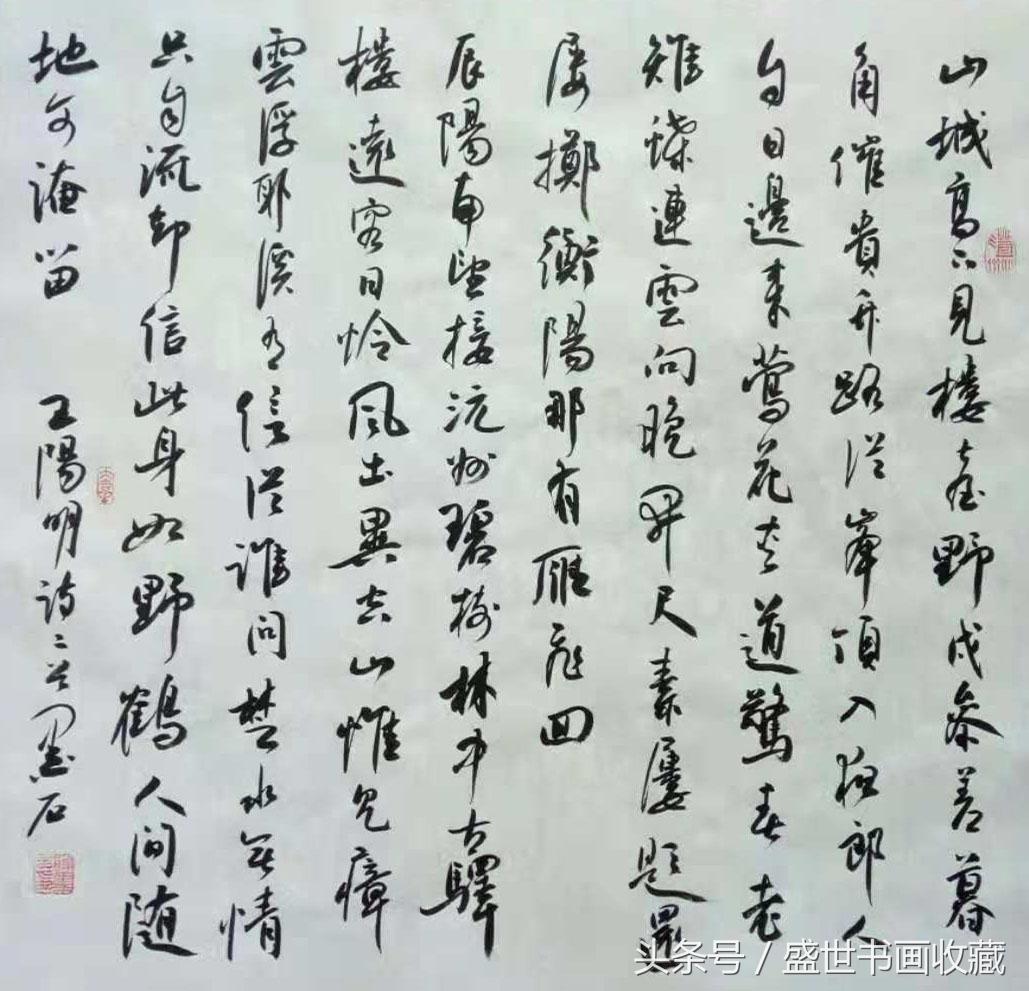 山城高下見樓臺野戍參差暮
角催貴竹路從峯頂入夜郎人
自日邊來鶯花夾道驚春老
雉蝶連雲向晚開尺素屢題還
屢擲衡陽那有雁飛回
辰陽南望接沅州碧樹林中古驛
樓遠客日憐風土異空山惟見瘴
雲浮耶溪有信從誰問楚水無情
只自流卻信此身如野鶴人間隨
地可淹留 王陽明詩二首 墨石
头条号 / 盛世书画收藏